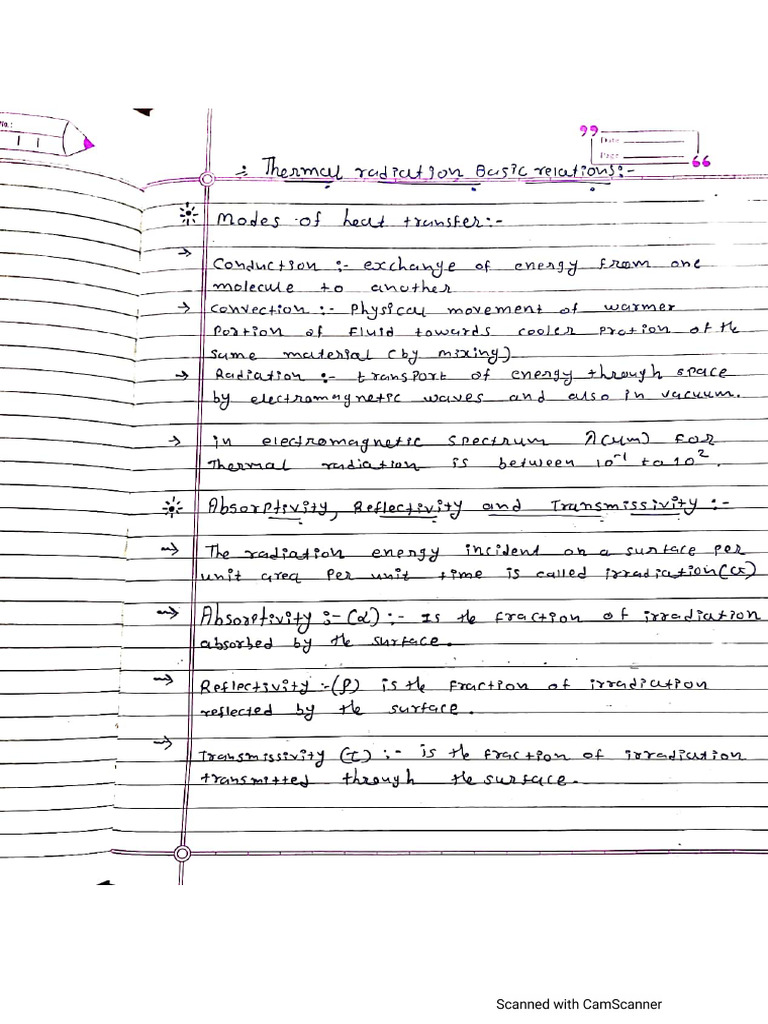 No.:
Date
Page
:- Thermal radiation Basic relations:-
Modes of heat transfer:-
→ Conduction :- exchange of energy from one
molecule to another
→ convection :- Physical movement of warmer
Portion of fluid towards cooler protion of the
same material (by mixing)
→ Radiation :- transport of energy through space
by electromagnetic waves and also in vacuum.
→ in electromagnetic spectrum λ(um) for
Thermal radiation is between 10⁻¹ to 10².
Absorptivity, Reflectivity and Transmissivity :-
→ The radiation energy incident on a surface per
unit area Per unit time is called irradiation(G)
→ Absorptivity :- (α) :- Is the fraction of irradiation
absorbed by the surface.
→ Reflectivity :- (ρ) is the fraction of irradiation
reflected by the surface.
→ Transmissivity (τ) :- is the fraction of irradiation
transmitted through the surface.
Scanned with CamScanner